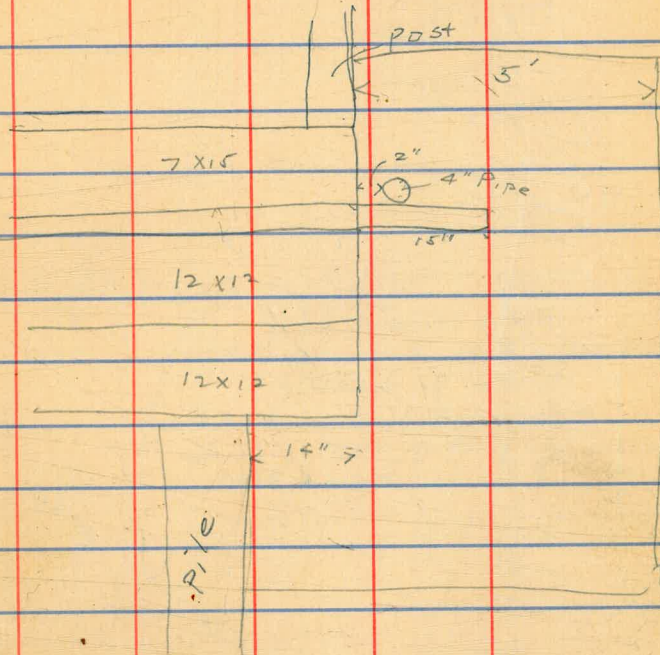 post
5'
7 x 15
2"
4" Pipe
15"
12 x 12
12 x 12
14"
Pile